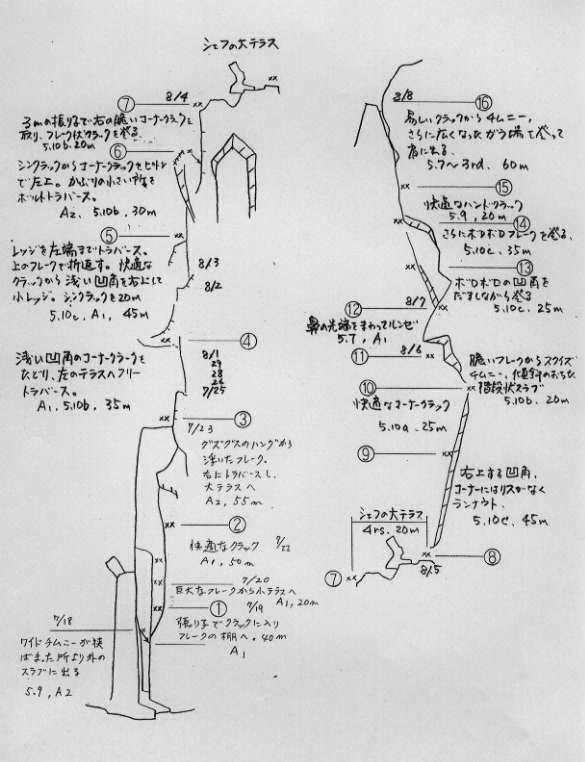 シェフの大テラス
⑦ 8/4 xx
3mの振り子で右の脆いコーナークラックを
取り、フレーク状クラックを登る。
5.10b. 20m
⑥ xx
シンクラックからコーナークラックをピトン
で左上。かぶりの小さい所を
ボルトトラバース。
A2, 5.10b, 30m
⑤ xx
レッジを左端までトラバース。
上のフレークで折返す。快適な
クラックから浅い凹角を右上して
小レッジ。シンクラックを20m
5.10c, A1, 45m
8/3
8/2
xx ④
浅い凹角のコーナークラックを
たどり、左のテラスへフリー
トラバース。
A1, 5.10b, 35m
8/1
29
28
26
7/25
xx ③
7/23
グズグズのハングから
浮いたフレーク。
右にトラバースし、
大テラスへ
A2, 55m
xx ②
快適なクラック 7/22
A1, 50m
xx 7/20
巨大なフレークから小テラスへ
A1, 20m
xx ① 7/19
振り子でクラックに入り
フレークの棚へ。40m
A1
7/18 xx
ワイドチムニーが狭
ばまった所より外の
スラブに出る
5.9, A2
8/8 ⑯
易しいクラックからチムニー、
さらに広くなったガラ場を登って
肩に出る。
5.7〜3rd, 60m
xx ⑮
快適なハンドクラック
5.9, 20m
xx ⑭
さらにボロボロフレークを登る。
5.10c, 35m
⑬
ボロボロの凹角を
だましながら登る
5.10c, 25m
8/7
⑫ xx
鼻の先端をまわってルンゼ
5.7, A1
⑪ 8/6 xx
脆いフレークからスクイズ
チムニー、傾斜のおちた
階段状スラブ
5.10b, 20m
⑩ xx
快適なコーナークラック
5.10a, 25m
⑨ xx
右上する凹角。
コーナーにはリスがなく
ランナウト。
5.10c, 45m
シェフの大テラス
4rs. 20m
xx ⑧
8/5
⑦ xx